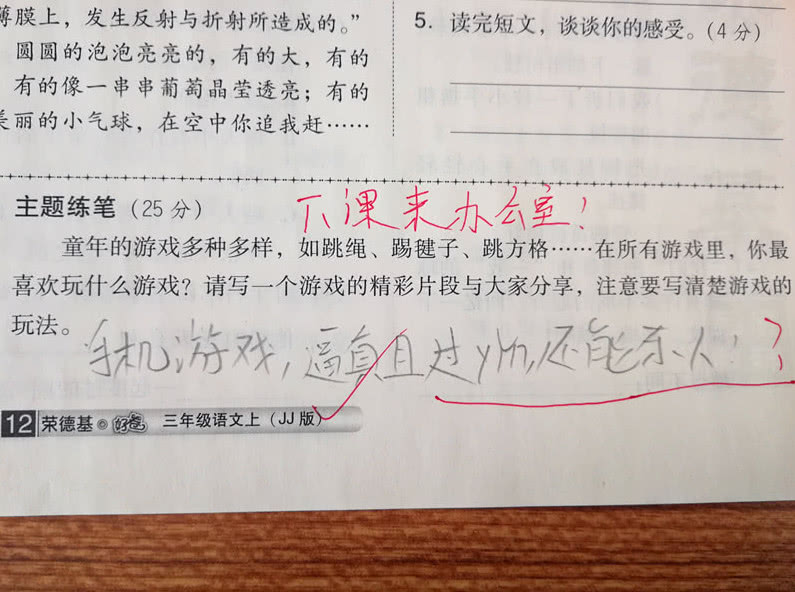 薄膜上，发生反射与折射所造成的。”
圆圆的泡泡亮亮的，有的大，有的
有的像一串串葡萄晶莹透亮；有的
美丽的小气球，在空中你追我赶……
5. 读完短文，谈谈你的感受。（4 分）
主题练笔（25 分）
下课来办公室！
童年的游戏多种多样，如跳绳、踢毽子、跳方格……在所有游戏里，你最
喜欢玩什么游戏？请写一个游戏的精彩片段与大家分享，注意要写清楚游戏的
玩法。
手机游戏，逼真且过yin，还能杀人！？
12 荣德基 好卷 三年级语文上（JJ 版）